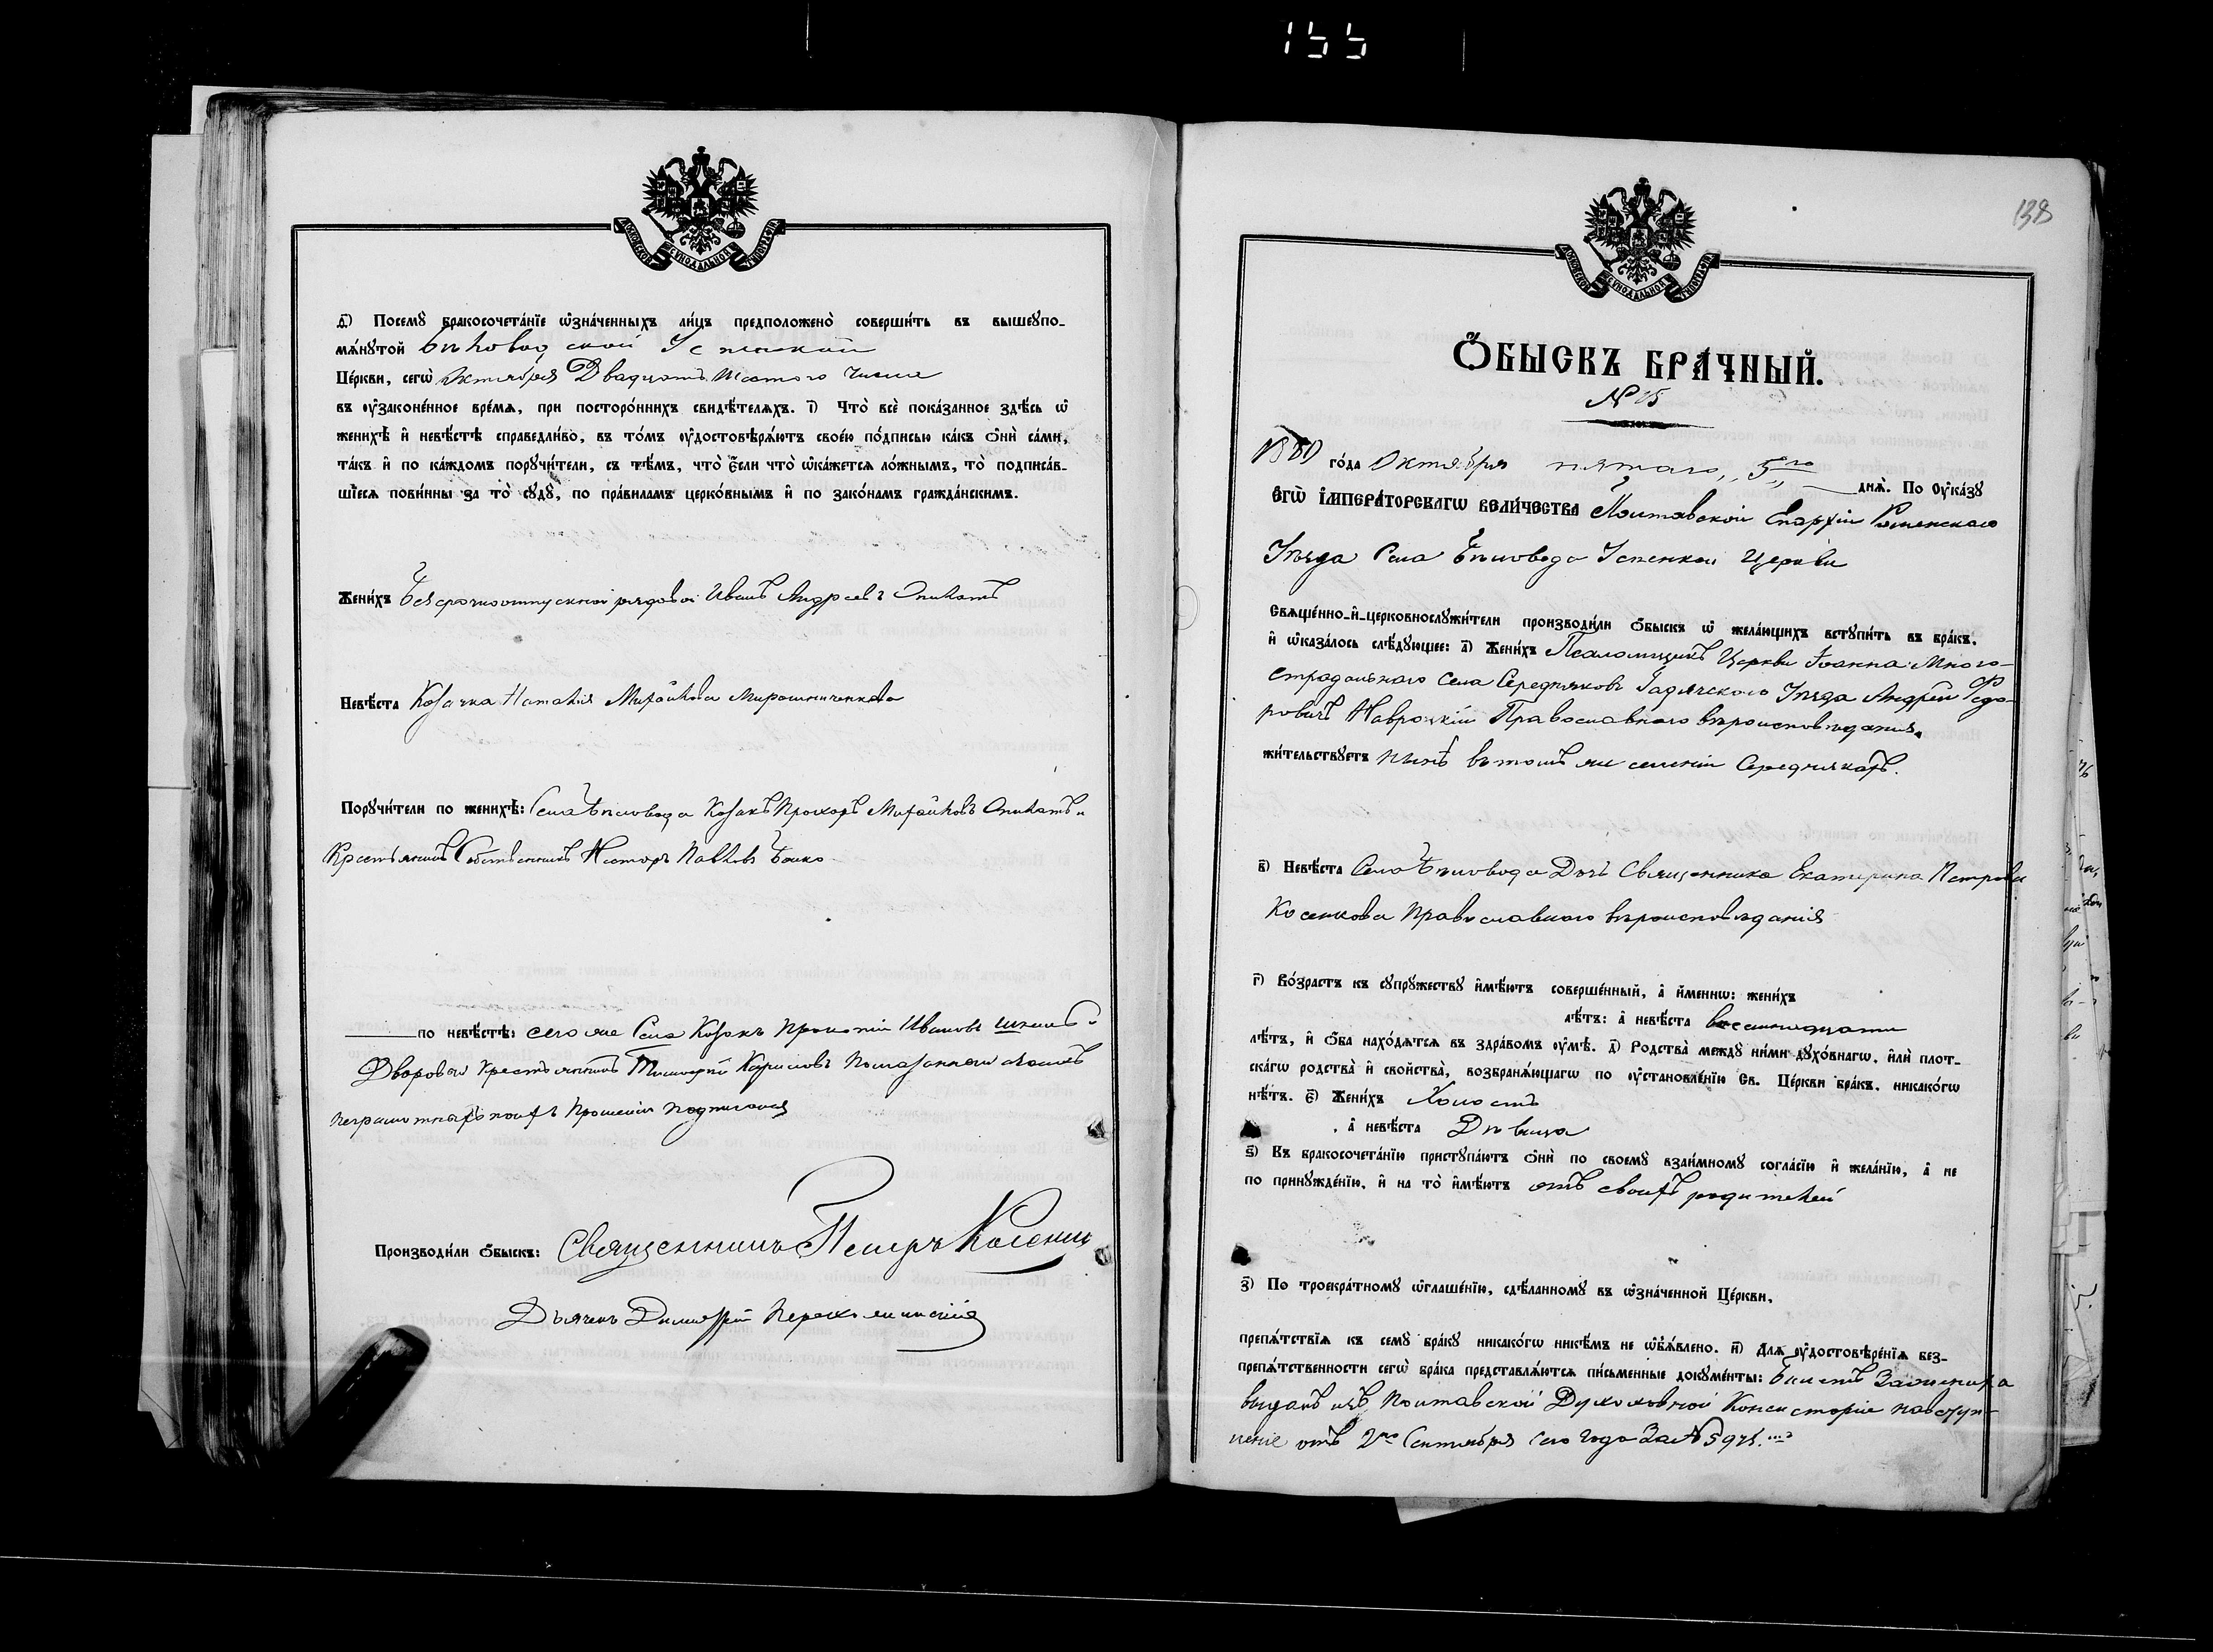 155
МОСКОВСКОЙ СѴНОДАЛЬНОЙ ТИПОГРАФІИ
д҃і) Посемꙋ бракосочетанїе ѡзначенныхъ лицъ предположено совершить въ вышеꙋпо-
мѧнꙋтой
Церкви, сегѡ Октября Двадцать шестого числа
въ ᲂузаконенное времѧ, при постороннихъ свидѣтелѧхъ. і҃) Что всѐ показанное здѣсь ѡ
женихѣ и невѣстѣ справедливо, въ томъ ᲂудостовѣрѧютъ своею подписью какъ ѻни сами,
такъ и по каждомъ порꙋчители, съ тѣмъ, что если что ѡкажетсѧ ложнымъ, то подписав-
шїесѧ повинны за то сꙋдꙋ, по правиламъ церковнымъ и по законамъ гражданскимъ.
Женихъ Безсрочноотпускной рядовой Иванъ Андреевъ
Невѣста Козачка Наталія Михайлова Мирошниченкова
Порꙋчители по женихѣ: Села Бѣловода Козакъ Прохоръ Михайловъ
Крестьянинъ Собственникъ Несторъ Павловъ Бойко
по невѣстѣ: сего же Села Козакъ Прокопій Ивановъ
Дворовой Крестьянинъ Тимофей Кириловъ
неграмотныхъ поихъ прошенію подписался
Производили ѻбыскъ: Священникъ Петръ Косенко
Дьячекъ Димитрій
138
МОСКОВСКОЙ СѴНОДАЛЬНОЙ ТИПОГРАФІИ
ѺБЫСКЪ БРАЧНЫЙ.
№ 15
1880 года Октября пятаго, 5го днѧ. По Ѹказꙋ
ЕГѠ ІМПЕРАТОРСКАГѠ ВЕЛИЧЕСТВА Полтавской Епархіи Роменскаго
Уѣзда Села Бѣловода Успенской Церкви
Свѧщенно-и-церковнослꙋжители производили ѻбыскъ ѡ желающихъ встꙋпить въ бракъ,
и ѡказалось слѣдꙋющее: а҃) Женихъ Псаломщикъ Церкви Іоанна Много-
страдальнаго Села Середняковъ Гадячского Уѣзда Андрей Федо-
ровичъ Навроцкій Православнаго вѣроисповѣданія,
жительствꙋетъ нынѣ въ томъ же селеніи Середнякахъ.
в҃) Невѣста Села Бѣловода Дочь Священника Екатерина Петрова
Косенкова Православнаго вѣроисповѣданія
г҃) Возрастъ къ сꙋпрꙋжествꙋ имѣютъ совершенный, а именнѡ: женихъ
лѣтъ: а невѣста восемнадцати
лѣтъ, и ѻба находѧтсѧ въ здравомъ ᲂумѣ. д҃) Родства междꙋ ними дꙋховнагѡ, или плот-
скагѡ родства и свойства, возбранѧющагѡ по ᲂустановленїю Св. Церкви бракъ, никакогѡ
нѣтъ. е҃) Женихъ Холостъ
, а невѣста Дѣвица
ѕ҃) Къ бракосочетанїю пристꙋпаютъ ѻни по своемꙋ взаимномꙋ согласїю и желанїю, а не
по принꙋжденїю, и на то имѣютъ отъ своихъ родителей
з҃) По троекратномꙋ ѡглашенїю, сдѣланномꙋ въ ѡзначенной Церкви,
препѧтствїѧ къ семꙋ бракꙋ никакогѡ никѣмъ не ѡб̾ѧвлено. и҃) Длѧ ᲂудостовѣренїѧ без-
препѧтственности сегѡ брака представлѧютсѧ письменные докꙋменты: Билетъ Жениха
выданъ изъ Полтавской Духовной Консисторіи на вступ-
леніе отъ 2го Сентября сего года За №